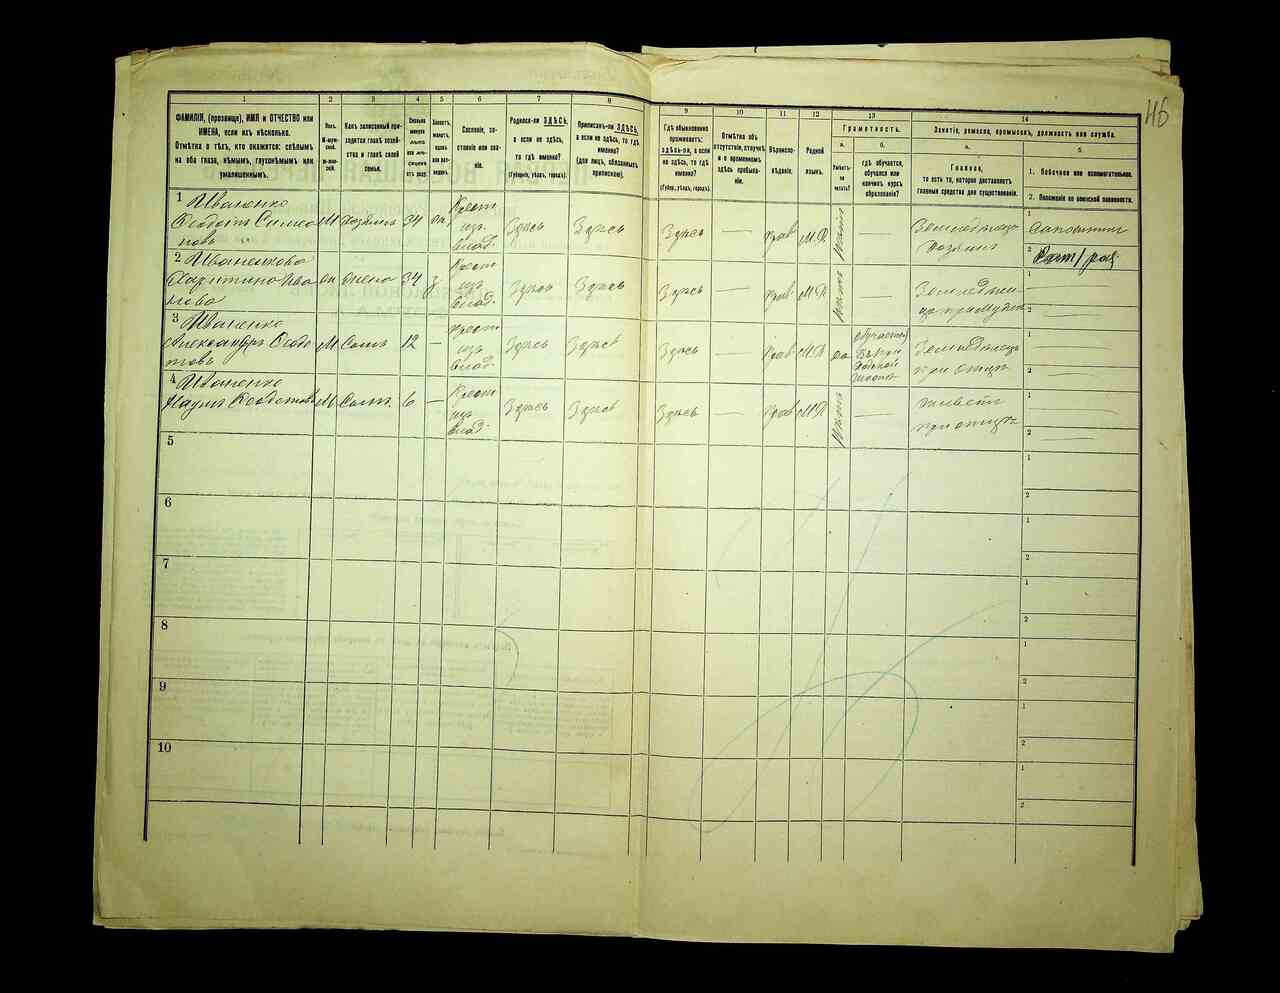 46
1 2 3 4 5 6 7 8 9 10 11 12 13 14
ФАМИЛІЯ, (прозвище), ИМЯ и ОТЧЕСТВО или
ИМЕНА, если ихъ нѣсколько.
Отмѣтка о тѣхъ, кто окажется: слѣпымъ
на оба глаза, нѣмымъ, глухонѣмымъ или
умалишеннымъ.
Полъ.
М-муж-
ской.
Ж-жен-
скій.
Какъ записанный при-
ходится главѣ хозяй-
ства и главѣ своей
семьи.
Сколько
минуло
лѣтъ
или мѣ-
сяцевъ
отъ роду.
Холостъ,
женатъ,
вдовъ
или раз-
веденъ.
Сословіе, со-
стояніе или зва-
ніе.
Родился-ли ЗДѢСЬ,
а если не здѣсь,
то гдѣ именно?
(Губернія, уѣздъ, городъ).
Приписанъ-ли ЗДѢСЬ,
а если не здѣсь, то гдѣ
именно?
(для лицъ, обязанныхъ
припискою).
Гдѣ обыкновенно
проживаетъ:
здѣсь-ли, а если
не здѣсь, то гдѣ
именно?
(Губер., уѣздъ, городъ).
Отмѣтка объ
отсутствіи, отлучкѣ
и о временномъ
здѣсь пребыва-
ніи.
Вѣроиспо-
вѣданіе.
Родной
языкъ.
Грамотность.
а.
Умѣетъ-
ли
читать?
б.
гдѣ обучается,
обучался или
кончилъ курсъ
образованія?
Занятіе, ремесло, промыселъ, должность или служба.
а.
Главное,
то есть то, которое доставляетъ
главныя средства для существованія.
б.
1. Побочное или вспомогательное.
2. Положеніе по воинской повинности.
1 Иваненко
Ѳеодотъ Симео
новъ
М Хозяинъ 34 Крест
изъ
влад. Здѣсь Здѣсь Здѣсь — Прав М.Р. —
Земледѣлецъ
хозяинъ
1
2
2 Иваненкова
Харитина Ива
нова
ж жена 34 з Крест
изъ
влад. Здѣсь Здѣсь Здѣсь — Прав М.Р. —
1 —
2 —
3 Иваненко
Александръ Ѳеодо
товъ
М Сынъ 12 — Крест
изъ
влад. Здѣсь Здѣсь Здѣсь — Прав М.Р. да
обучается
школѣ
Земледѣлецъ
при отцѣ
1 —
2 —
4 Иваненко
Наумъ Ѳеодотовъ
М Сынъ 6 — Крест
изъ
влад. Здѣсь Здѣсь Здѣсь — Прав М.Р. —
при отцѣ
1 —
2 —
5 1 2
6 1 2
7 1 2
8 1 2
9 1 2
10 1 2